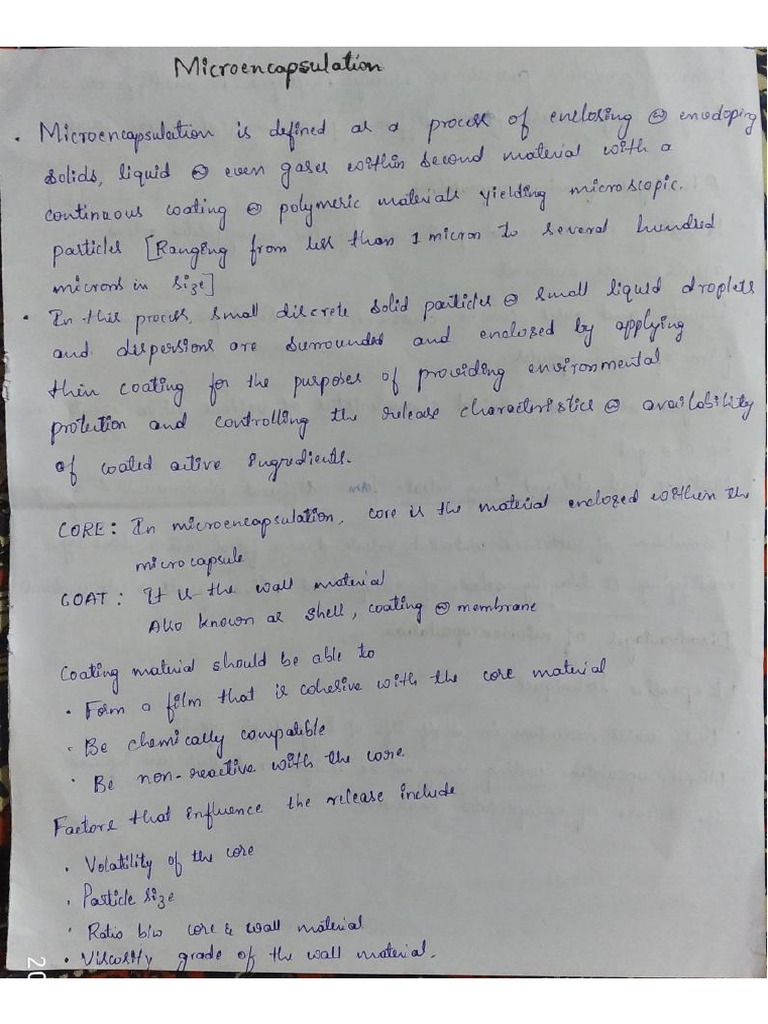 Microencapsulation
• Microencapsulation is defined as a process of enclosing or enveloping
solids, liquid or even gases within second material with a
continuous coating or polymeric materials yielding microscopic.
particles [Ranging from less than 1 micron to several hundred
microns in size]
• In this process, small discrete solid particles or small liquid droplets
and dispersions are surrounded and enclosed by applying
thin coating for the purposes of providing environmental
protection and controlling the release characteristics or availability
of coated active Ingredients.
CORE: In microencapsulation, core is the material enclosed within the
microcapsule
COAT: It is the wall material
Also known as shell, coating or membrane
Coating material should be able to
• Form a film that is cohesive with the core material
• Be chemically compatible
• Be non-reactive with the core.
Factors that influence the release include
• Volatility of the core
• Particle size
• Ratio b/w core & wall material
• Viscosity grade of the wall material.
20